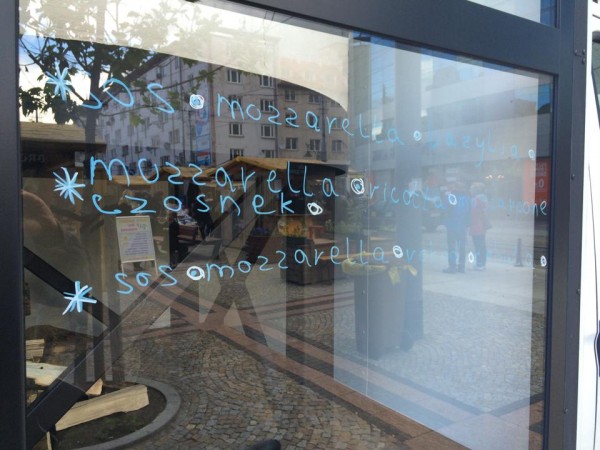 * sos • mozzarella • bazylia •
* mozzarella • ricotta • mascarpone
czosnek •
* sos • mozzarella •